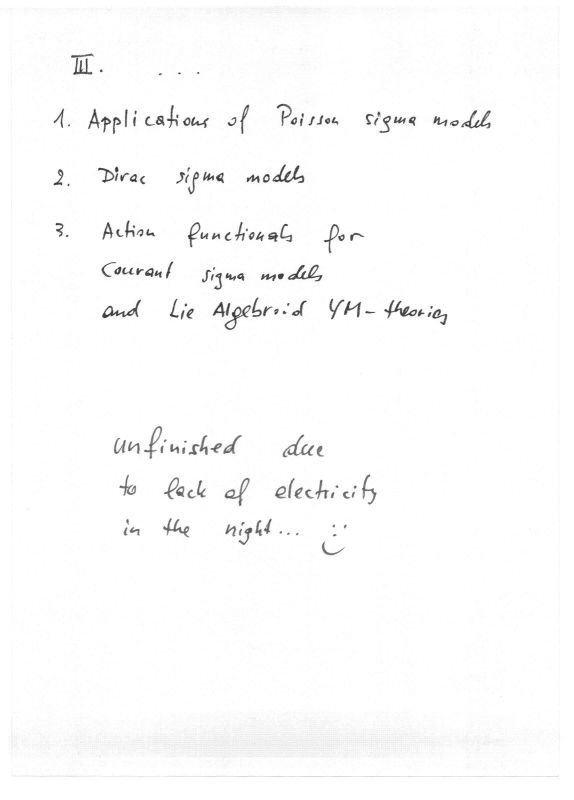 III. ...
1. Applications of Poisson sigma models
2. Dirac sigma models
3. Action functionals for
Courant sigma models
and Lie Algebroid YM-theories
unfinished due
to lack of electricity
in the night... :)